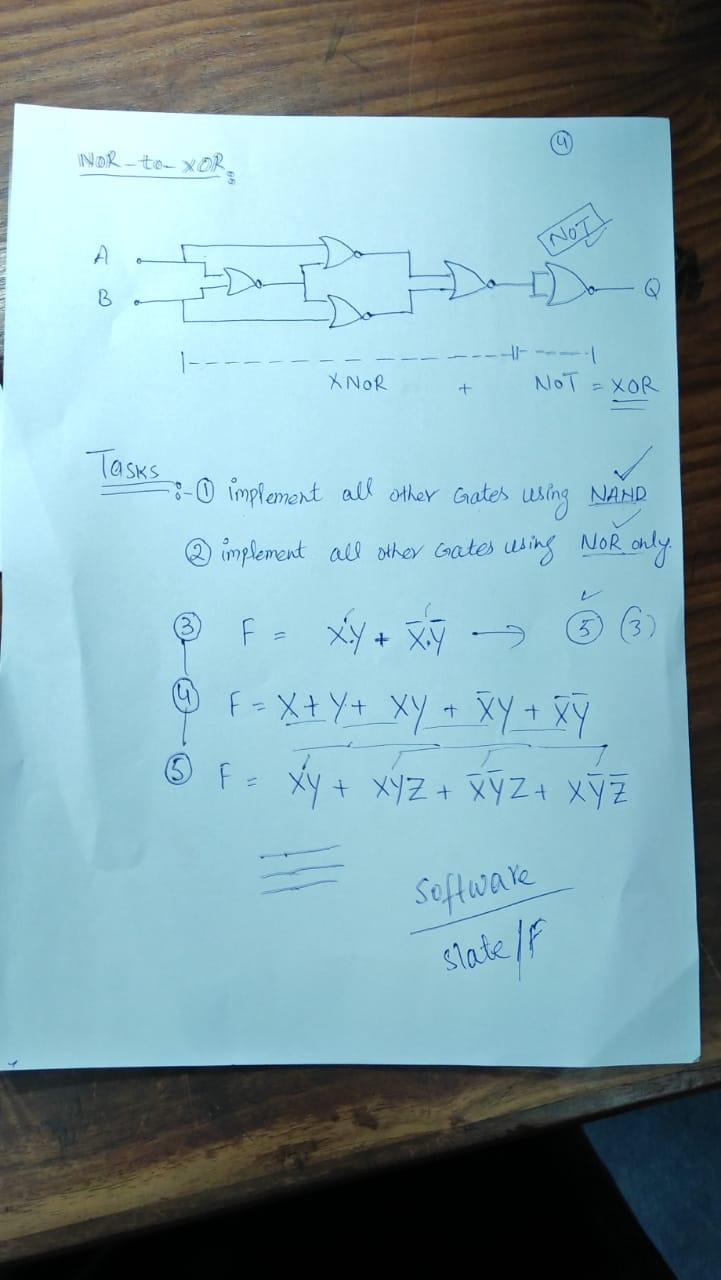 ④
NOR-to-XOR:
NOT
A
B
Q
XNOR + NOT = XOR
Tasks:- ① implement all other Gates using NAND
② implement all other Gates using NOR only.
③ F = X.Y + X̅.Y̅ → ⑤ (3)
④ F = X + Y + XY + X̅Y + X̅Y̅
⑤ F = XY + XYZ + X̅Y̅Z + XY̅Z̅
Software
slate/F